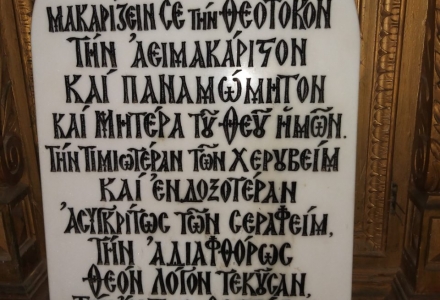 μακαρίζειν Σε τήν Θεοτόκον
τήν ἀειμακάριστον
καί παναμώμητον
καί Μητέρα τοῦ Θεοῦ ἡμῶν.
τήν τιμιωτέραν τῶν Χερυβείμ
καί ἐνδοξοτέραν
ἀσυγκρίτως τῶν Σεραφείμ,
τήν ἀδιαφθόρως
Θεόν Λόγον τεκοῦσαν,